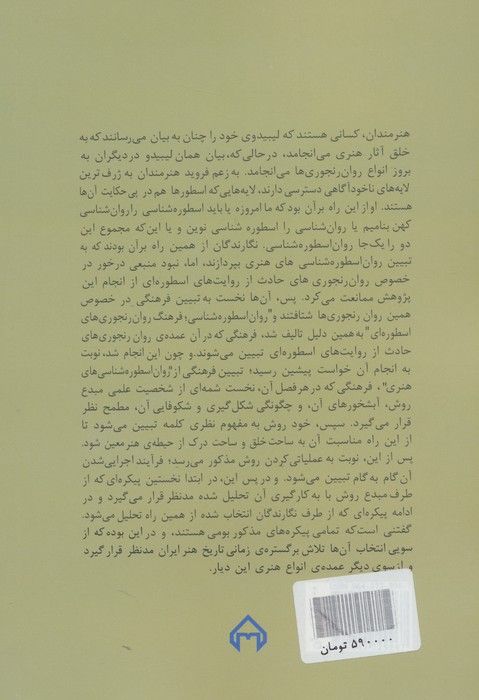 هنرمندان، کسانی هستند که لیبیدوی خود را چنان به بیان می‌رسانند که به
خلق آثار هنری می‌انجامد، درحالی‌که، بیان همان لیبیدو در دیگران به
بروز انواع روان‌رنجوری‌ها می‌انجامد. به زعم فروید هنرمندان به ژرف ترین
لایه‌های ناخودآگاهی دسترسی دارند، لایه‌هایی که اسطورها هم در پی حکایت آن‌ها
هستند. او از این راه برآن بود که ما امروزه یا باید اسطوره‌شناسی را روان‌شناسی
کهن بنامیم یا روان‌شناسی را اسطوره شناسی نوین و یا این‌که مجموع این
دو را یک‌جا روان‌اسطوره‌شناسی. نگارندگان از همین راه برآن بودند که به
تبیین روان‌اسطوره‌شناسی های هنری بپردازند، اما، نبود منبعی درخور در
خصوص روان‌رنجوری های حادث از روایت‌های اسطوره‌ای از انجام این
پژوهش ممانعت می‌کرد. پس، آن‌ها نخست به تبیین فرهنگی در خصوص
همین روان رنجوری‌ها شتافتند و"روان‌اسطوره‌شناسی؛ فرهنگ روان‌رنجوری‌های
اسطوره‌ای" به همین دلیل تالیف شد، فرهنگی که در آن عمده‌ی روان رنجوری‌های
حادث از روایت‌های اسطوره‌ای تبیین می‌شوند.و چون این انجام شد، نوبت
به انجام آن خواست پیشین رسید؛ تبیین فرهنگی از"روان‌اسطوره‌شناسی‌های
هنری"، فرهنگی که در هر فصل آن، نخست شمه‌ای از شخصیت علمی مبدع
روش، آبشخورهای آن، و چگونگی شکل‌گیری و شکوفایی آن، مطمح نظر
قرار می‌گیرد. سپس، خود روش به مفهوم نظری کلمه تبیین می‌شود تا
از این راه مناسبت آن به ساحت خلق و ساحت درک از حیطه‌ی هنر معین شود.
پس از این، نوبت به عملیاتی‌کردن روش مذکور می‌رسد؛ فرآیند اجرایی‌شدن
آن گام به گام تبیین می‌شود. و در پس این، در ابتدا نخستین پیکره‌ای که از
طرف مبدع روش با به کارگیری آن تحلیل شده مدنظر قرار می‌گیرد و در
ادامه پیکره‌ای که از طرف نگارندگان انتخاب شده از همین راه تحلیل می‌شود.
گفتنی است‌که تمامی پیکره‌های مذکور بومی هستند، و در این بوده که از
سویی انتخاب آن‌ها تلاش برگستره‌ی زمانی تاریخ هنر ایران مدنظر قرار گیرد
و از سوی دیگر عمده‌ی انواع هنری این دیار.
۵۹۰۰۰۰ تومان